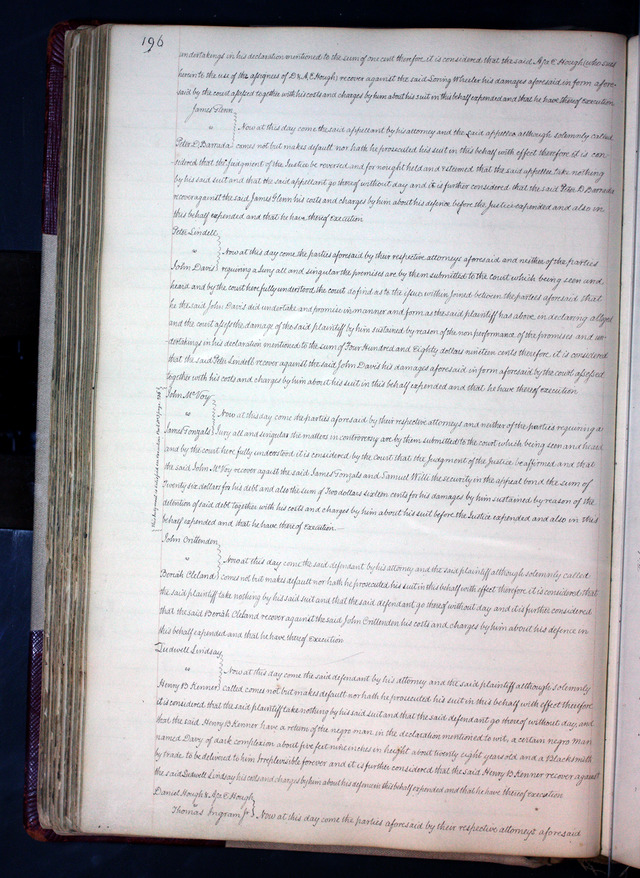 196
undertakings in his declaration mentioned to the sum of one cent therefore it is considered that the said Asa E Hough (who sues
herein to the use of the assignees of D & A E Hough) recover against the said Loring Wheeler his damages aforesaid in form afore-
said by the court assessed together with his costs and charges by him about his suit in this behalf expended and that he have thereof execution
James Glenn
"
Now at this day come the said appellant by his attorney and the said appellee although solemnly called
Peter D Barrada comes not but makes default nor hath he prosecuted his suit in this behalf with effect therefore it is con-
sidered that the judgment of the Justice be reversed and for nought held and esteemed that the said appellee take nothing
by his said suit and that the said appellant go thereof without day and it is further considered that the said Peter D. Barrada
recover against the said James Glenn his costs and charges by him about his defence before the Justice expended and also in
this behalf expended and that he have thereof execution
Peter Lindell
"
Now at this day come the parties aforesaid by their respective attorneys aforesaid and neither of the parties
John Davis requiring a Jury all and singular the premises are by them submitted to the court which being seen and
heard and by the court here fully understood the court do find as to the issue within joined between the parties aforesaid that
he the said John Davis did undertake and promise in manner and form as the said plaintiff has above in declaring alleged
and the court assess the damage of the said plaintiff by him sustained by reason of the non performance of the promises and un-
dertakings in his declaration mentioned to the sum of Four Hundred and Eighty dollars nineteen cents therefore it is considered
that the said Peter Lindell recover against the said John Davis his damages aforesaid in form aforesaid by the court assessed
together with his costs and charges by him about his suit in this behalf expended and that he have thereof execution
John McVoy
"
Now at this day come the parties aforesaid by their respective attorneys and neither of the parties requiring a
James Gonzals Jury all and singular the matters in controversy are by them submitted to the court which being seen and heard
and by the court here fully understood it is considered by the court that the judgment of the Justice be affirmed and that
the said John McVoy recover against the said James Gonzals and Samuel Willi the security in the appeal bond the sum of
Twenty six dollars for his debt and also the sum of Two dollars sixteen cents for his damages by him sustained by reason of the
detention of said debt together with his costs and charges by him about his suit before the Justice expended and also in this
behalf expended and that he have thereof execution.
John Crittenden
"
Now at this day come the said defendant by his attorney and the said plaintiff although solemnly called
Benah Cleland comes not but makes default nor hath he prosecuted his suit in this behalf with effect therefore it is considered that
the said plaintiff take nothing by his said suit and that the said defendant go thereof without day and it is further considered
that the said Benah Cleland recover against the said John Crittenden his costs and charges by him about his defence in
this behalf expended and that he have thereof execution
Ludwell Lindsay
"
Now at this day come the said defendant by his attorney and the said plaintiff although solemnly
Henry B Renner called comes not but makes default nor hath he prosecuted his suit in this behalf with effect therefore
it is considered that the said plaintiff take nothing by his said suit and that the said defendant go thereof without day, and
that the said Henry B Renner have a return of the negro man in the declaration mentioned to wit, a certain negro man
named Davy of dark complexion about five feet nine inches in height about twenty eight years old and a Blacksmith
by trade to be delivered to him irreplevisable forever and it is further considered that the said Henry B. Renner recover against
the said Ludwell Lindsay his costs and charges by him about his defence in this behalf expended and that he have thereof execution
Daniel Hough & Asa E Hough
"
Thomas Ingram Jr Now at this day come the parties aforesaid by their respective attorneys aforesaid